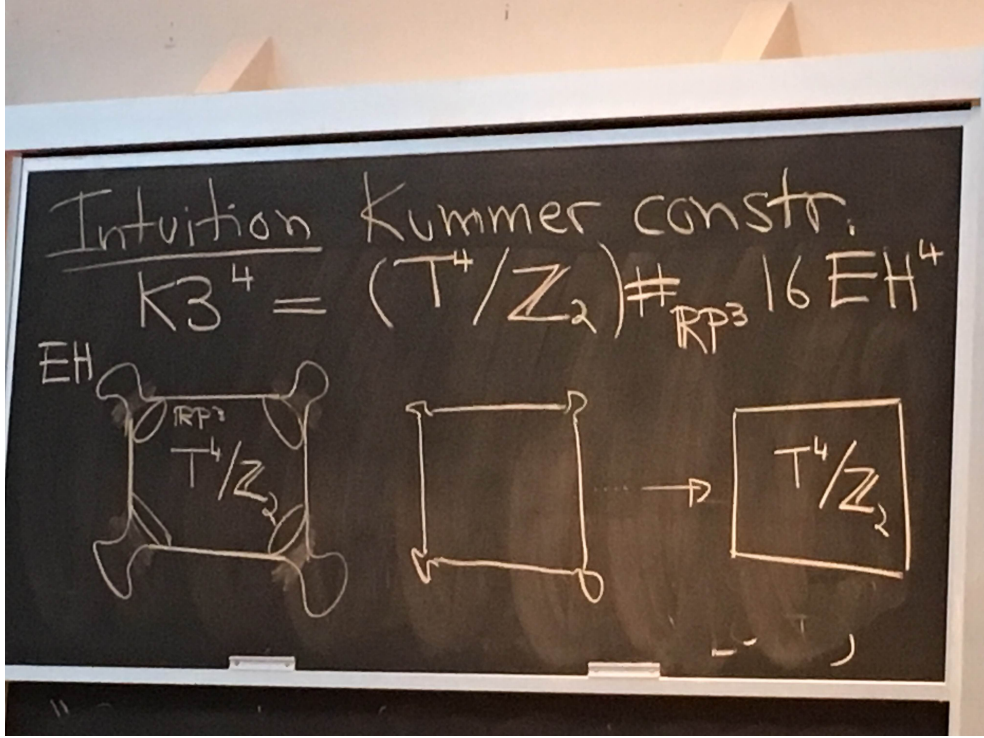 Intuition Kummer constr.
K3⁴ = (T⁴/ℤ₂)#_RP³ 16 EH⁴
EH
RP³
T⁴/ℤ₂
T⁴/ℤ₂